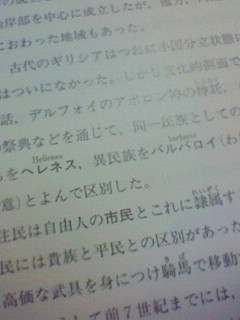 岸部を中心に成立したが、
おわった地域もあった。
古代のギリシアはつねに小国分立状態に
はついになかった。しかし文化的側面で
話、デルフォイのアポロン神の神託、
の祭典などを通じて、同一民族としての
Hellenes
barbaroi
をヘレネス、異民族をバルバロイ(わ
意)とよんで区別した。
れいぞく
住民は自由人の市民とこれに隷属す
民には貴族と平民との区別があった
きば
高価な武具を身につけ騎馬で移動す
て前7世紀までには、